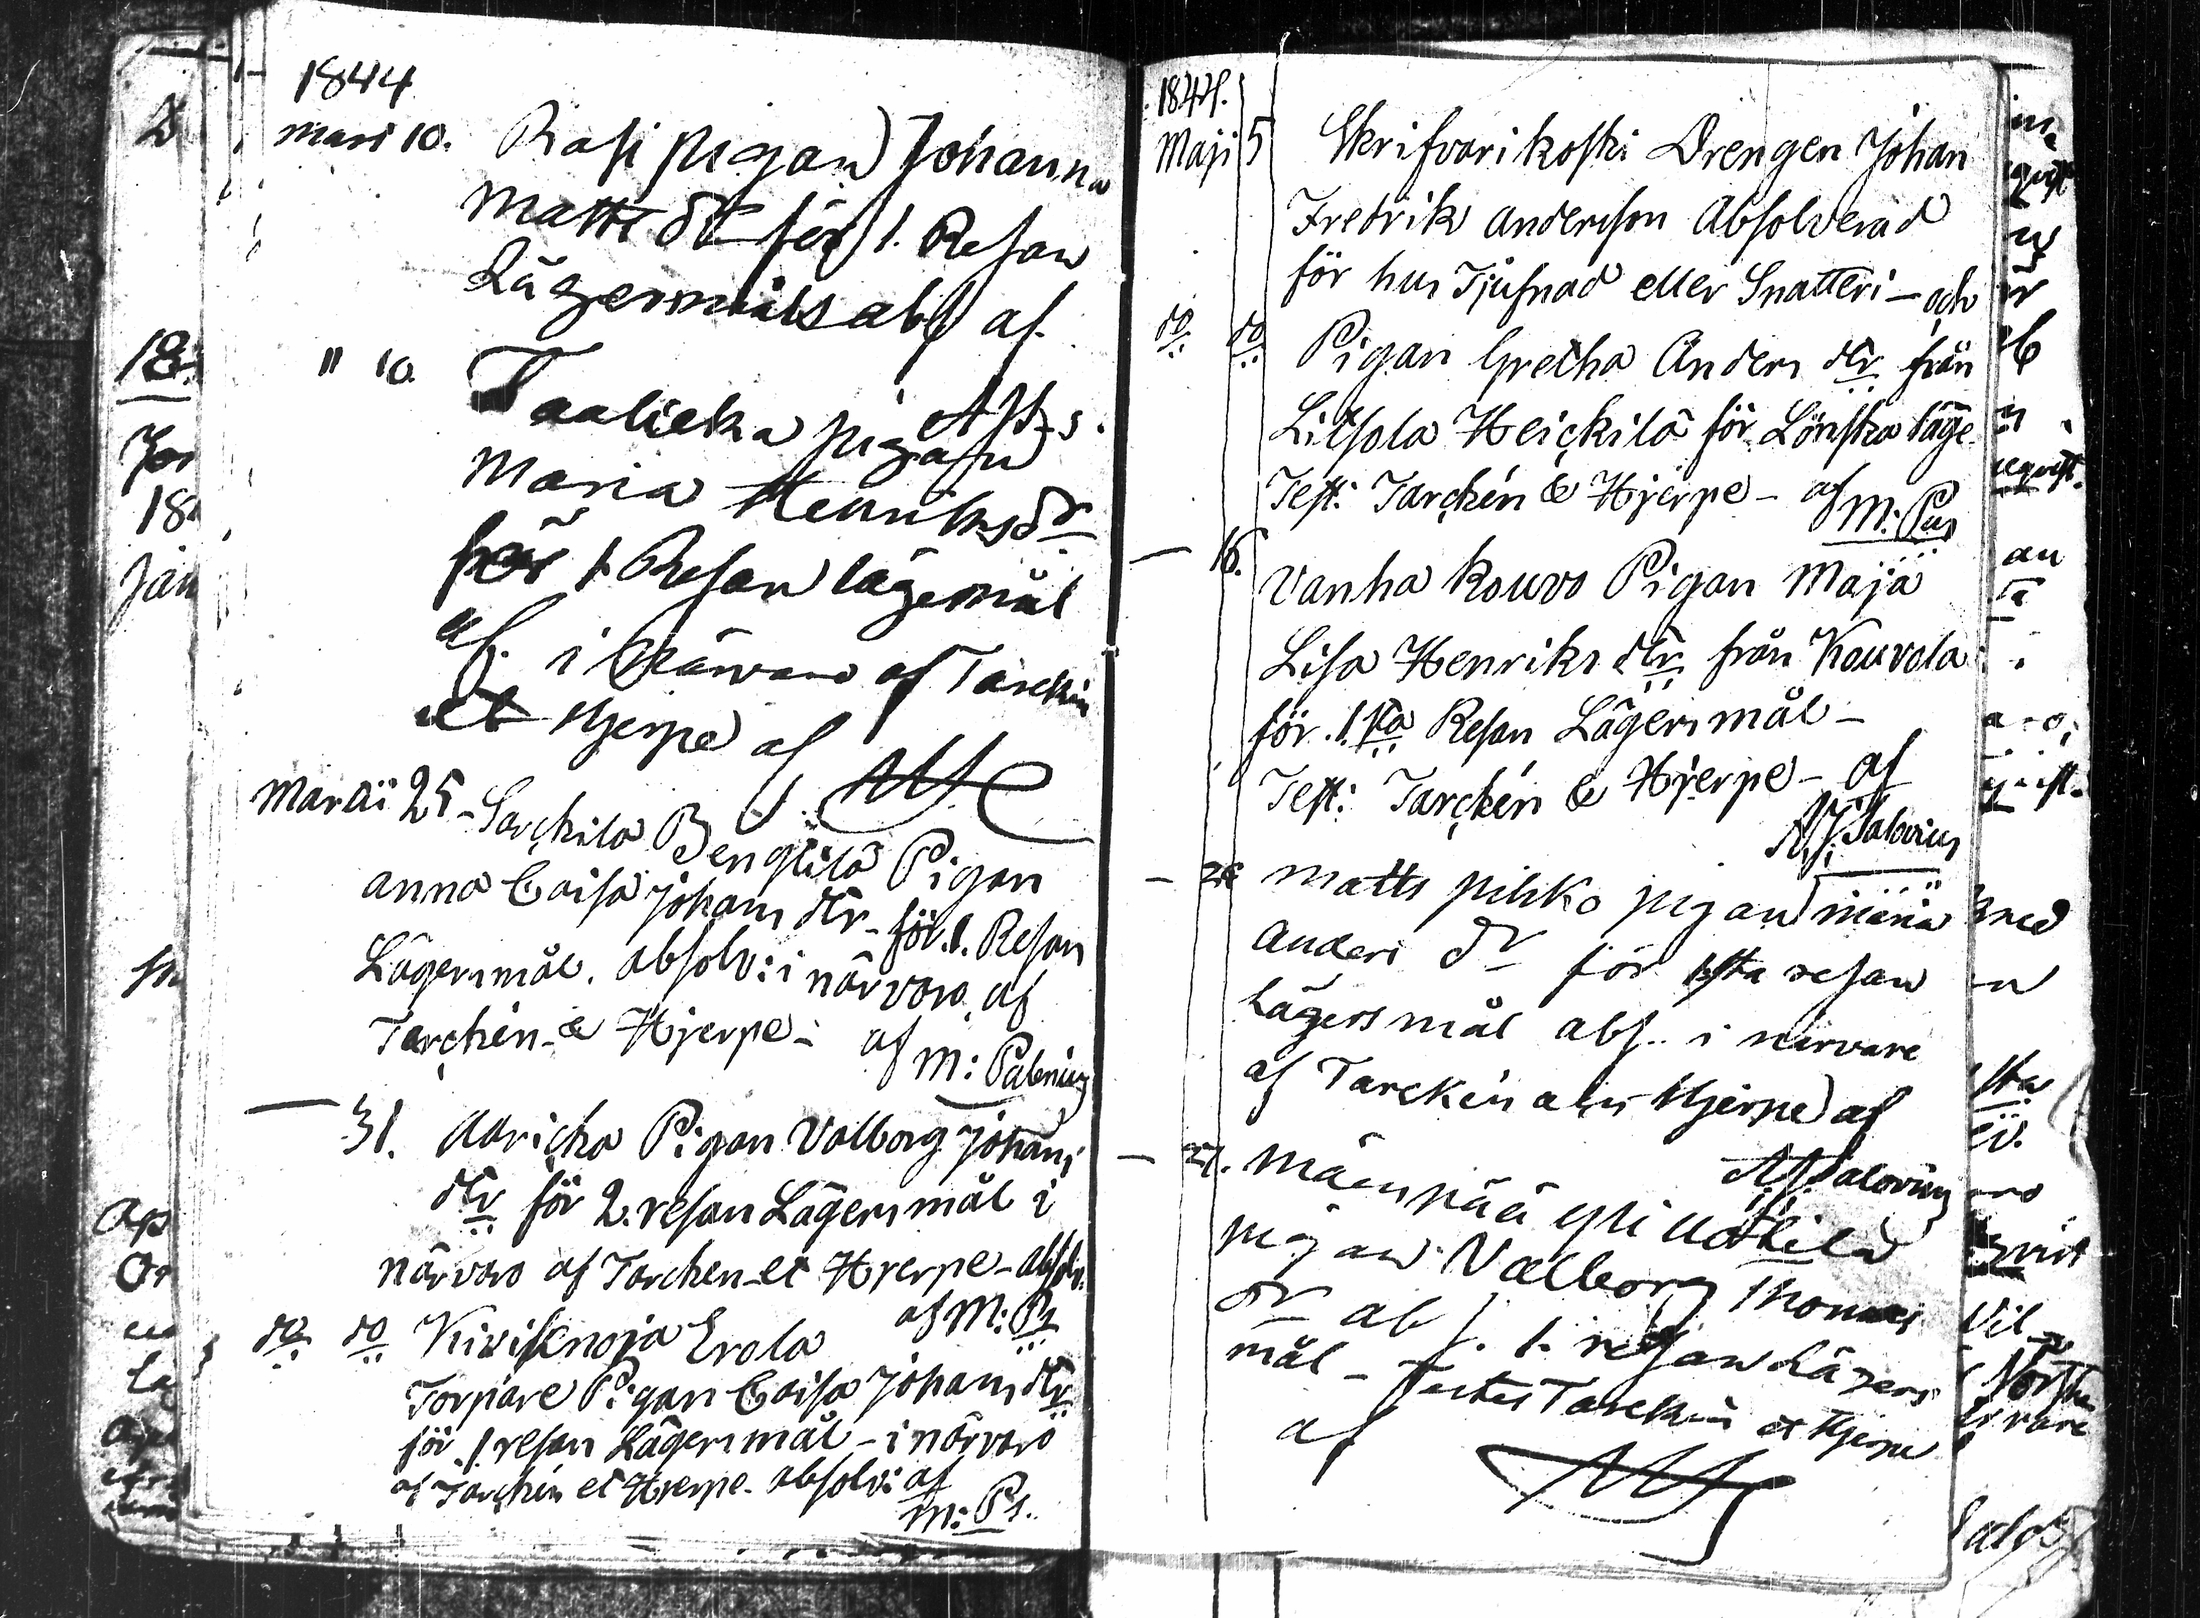 1844
Mars 10. Rasi pigan Johanna
Matts dr för 1. Resan
Lägersmåls abs af
A J S-s.
" 10. Taalicka pigan
Maria Henriksdr
för 1 Resan lägersmål
af. i närvaro af Tarckén
et Hjerpe af
Martii 25 - Sarckila Bengtilä Pigan
anna Caisa Johans dtr - för 1. Resan
Lägersmål. absolv: i närvaro af
Tarckén & Hjerpe - af M: Palenius
— 31. Pigan Valborg Johans
dtr för 2. resan Lägersmål i
närvaro af Tarcken et Hjerpe - absolv.
af M: Ps
do do Kivisenoja Erola
Torpare Pigan Caisa Johans dtr
för 1 resan Lägersmål - i närvaro
af Tarckén et Hjerpe. absolv: af
M: Ps.
1844.
Maji 5 Skrifvarikoski Drengen Johan
Fredrik Andersson Absolverad
för hus Tjufnad eller Snatteri - och
do do Pigan Gretha Anders dtr från
Litsola Heickilä för Lönska läge
Test: Tarckén & Hjerpe - af M: Ps
— 16. Vanha Kouvo Pigan Maja
Lisa Henriks dtr från Kouvola
för 1sta Resan Lägersmål -
Test: Tarckén & Hjerpe - af
A. J. Salovius
— 26 Matts pilkko pigan Maria
Anders dr för 1sta resan
Lägersmål abs.. i närvare
af Tarckén och Hjerpe af
A J Salovius
— 27. Mäenpää
pigan Valborg Thomas
dr abs. 1. resan Lägers
mål - Testes Tarckén et Hjerpe
af